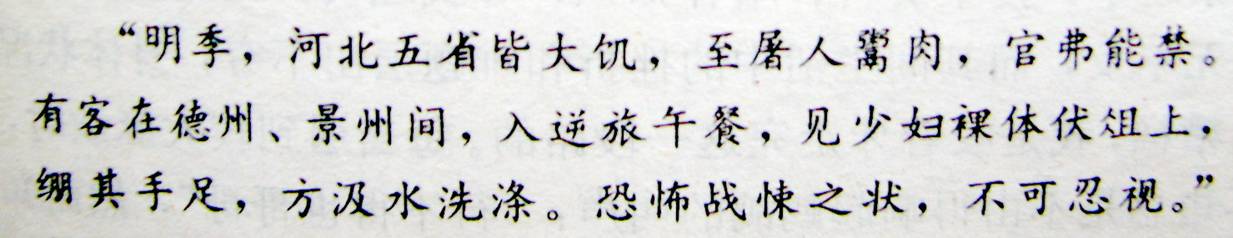 “明季，河北五省皆大饥，至屠人鬻肉，官弗能禁。
有客在德州、景州间，入逆旅午餐，见少妇裸体伏俎上，
绷其手足，方汲水洗涤。恐怖战悚之状，不可忍视。”